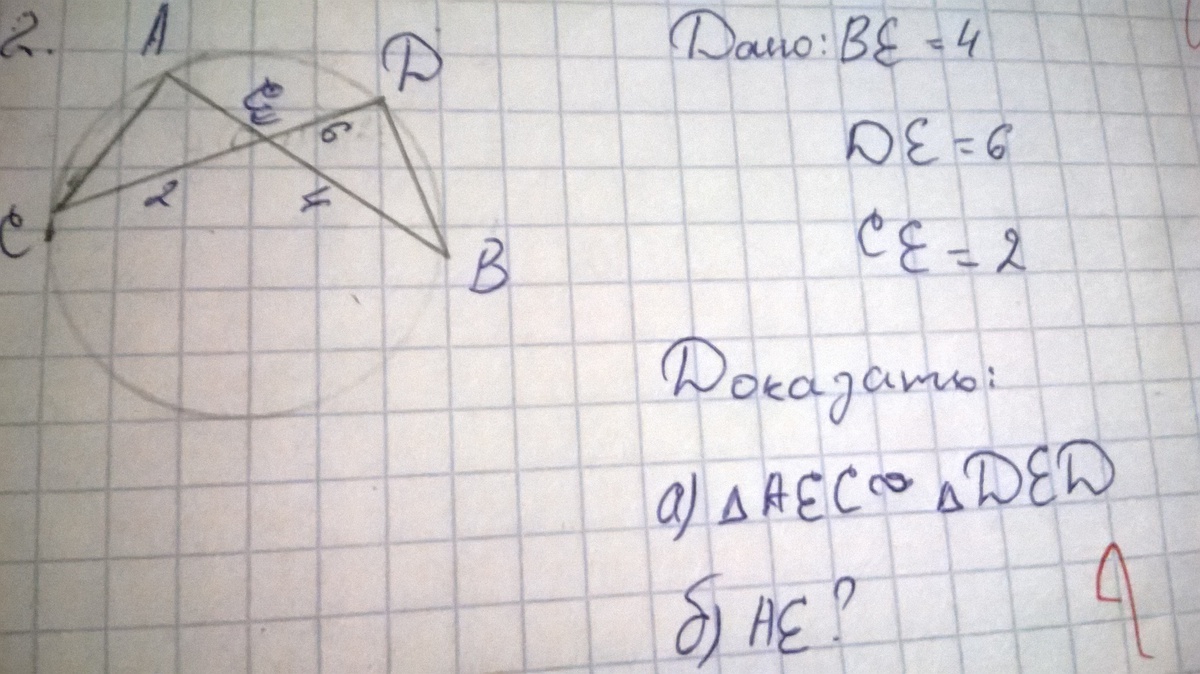 2.
A
D
E
6
2
4
C
B
Дано: BE = 4
DE = 6
CE = 2
Доказать:
а) △AEC ∞ △DED
б) AE?